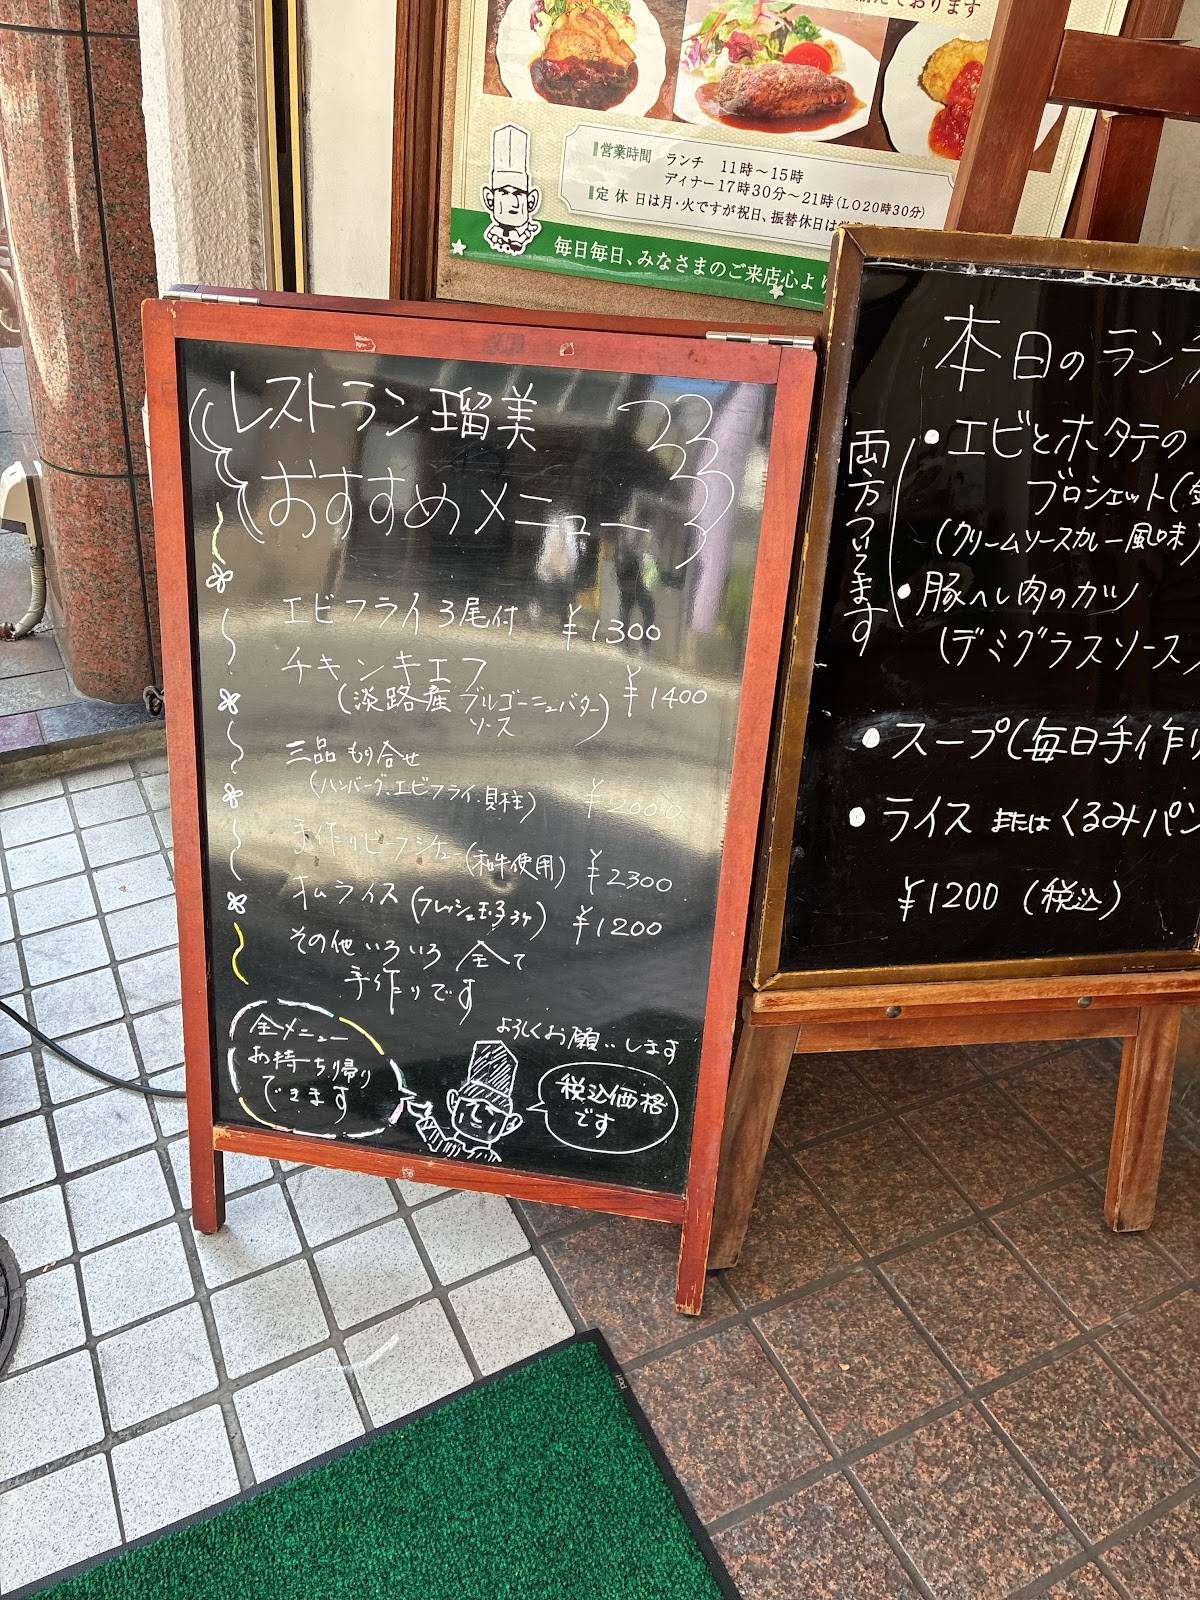 ております
営業時間 ランチ 11時〜15時
ディナー17時30分〜21時(LO20時30分)
定休日は月・火ですが祝日、振替休日は
毎日毎日、みなさまのご来店心より
レストラン瑠美
おすすめメニュー
エビフライ3尾付 ¥1300
チキンキエフ ¥1400
(淡路産ブルゴーニュバター
ソース)
三品もり合せ
(ハンバーグ、エビフライ、貝柱) ¥2000
手作りビーフシチュー(和牛使用) ¥2300
オムライス(フレッシュ玉子3ヶ) ¥1200
その他いろいろ全て
手作りです
全メニュー
お持ち帰り
できます
よろしくお願いします
税込価格
です
本日のラン
両方ついてます
・エビとホタテの
ブロシェット(
(クリームソースカレー風味)
・豚ヘレ肉のカツ
(デミグラスソース)
・スープ(毎日手作り
・ライスまたはくるみパン
¥1200(税込)